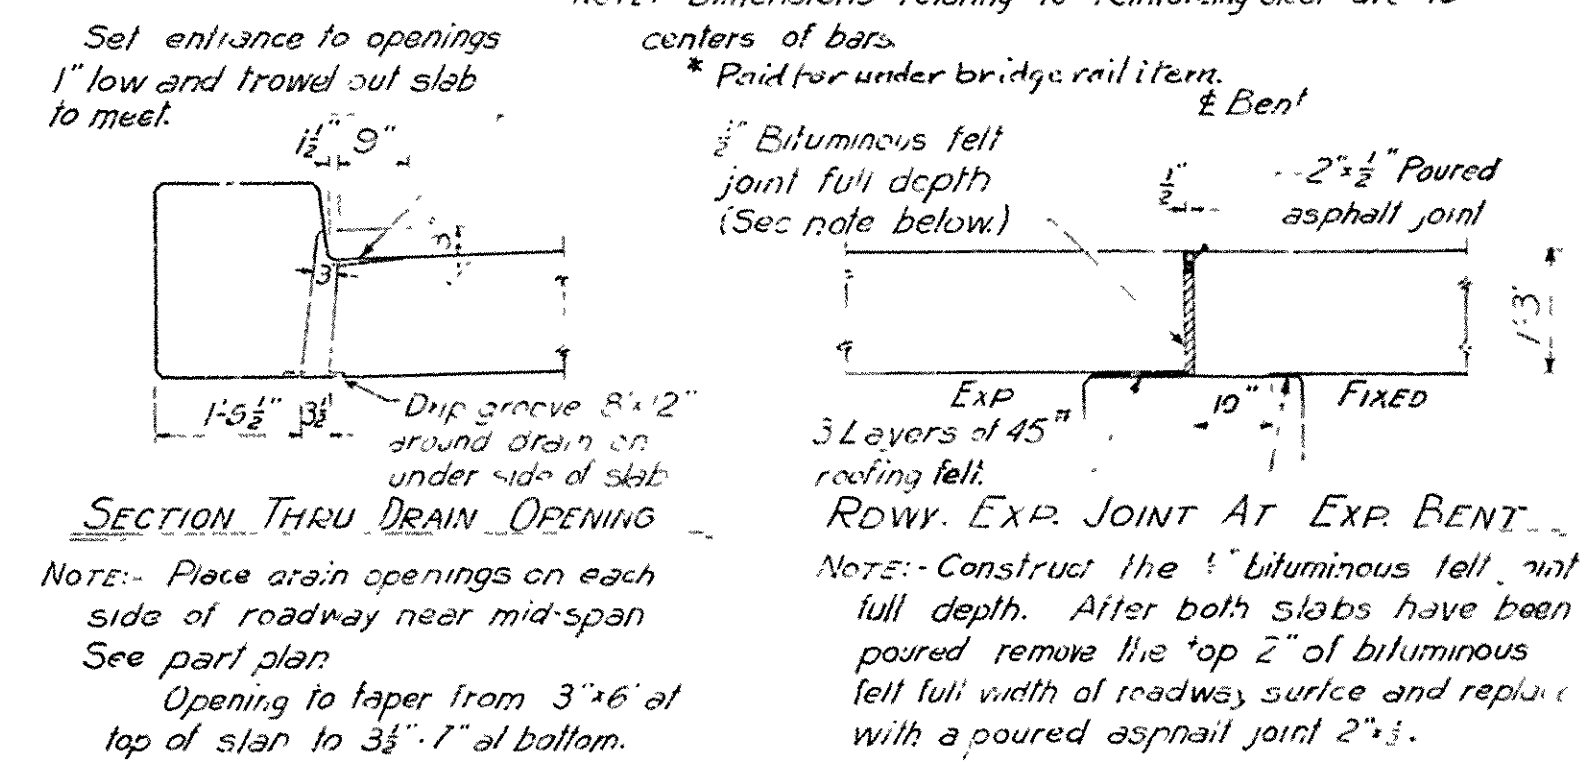 NOTE: Dimensions relating to reinforcing steel are to
centers of bars.
* Paid for under bridge rail item.
Set entrance to openings
1" low and trowel out slab
to meet.
1½" 9"
3"
3"
1'-5½" 3½"
Drip groove
around drain on
under side of slab
SECTION THRU DRAIN OPENING
NOTE:- Place drain openings on each
side of roadway near mid-span
See part plan
Opening to taper from 3"x6" at
top of slab to 3½" · 7" at bottom.
℄ Bent
½" Bituminous felt
joint full depth
(See note below.)
½"
2"x½" Poured
asphalt joint
1'-3"
EXP
10"
FIXED
3 Layers of 45#
roofing felt.
RDWY. EXP. JOINT AT EXP. BENT
NOTE:- Construct the bituminous felt joint
full depth. After both slabs have been
poured remove the top 2" of bituminous
felt full width of roadway surfce and replace
with a poured asphalt joint 2"x½.